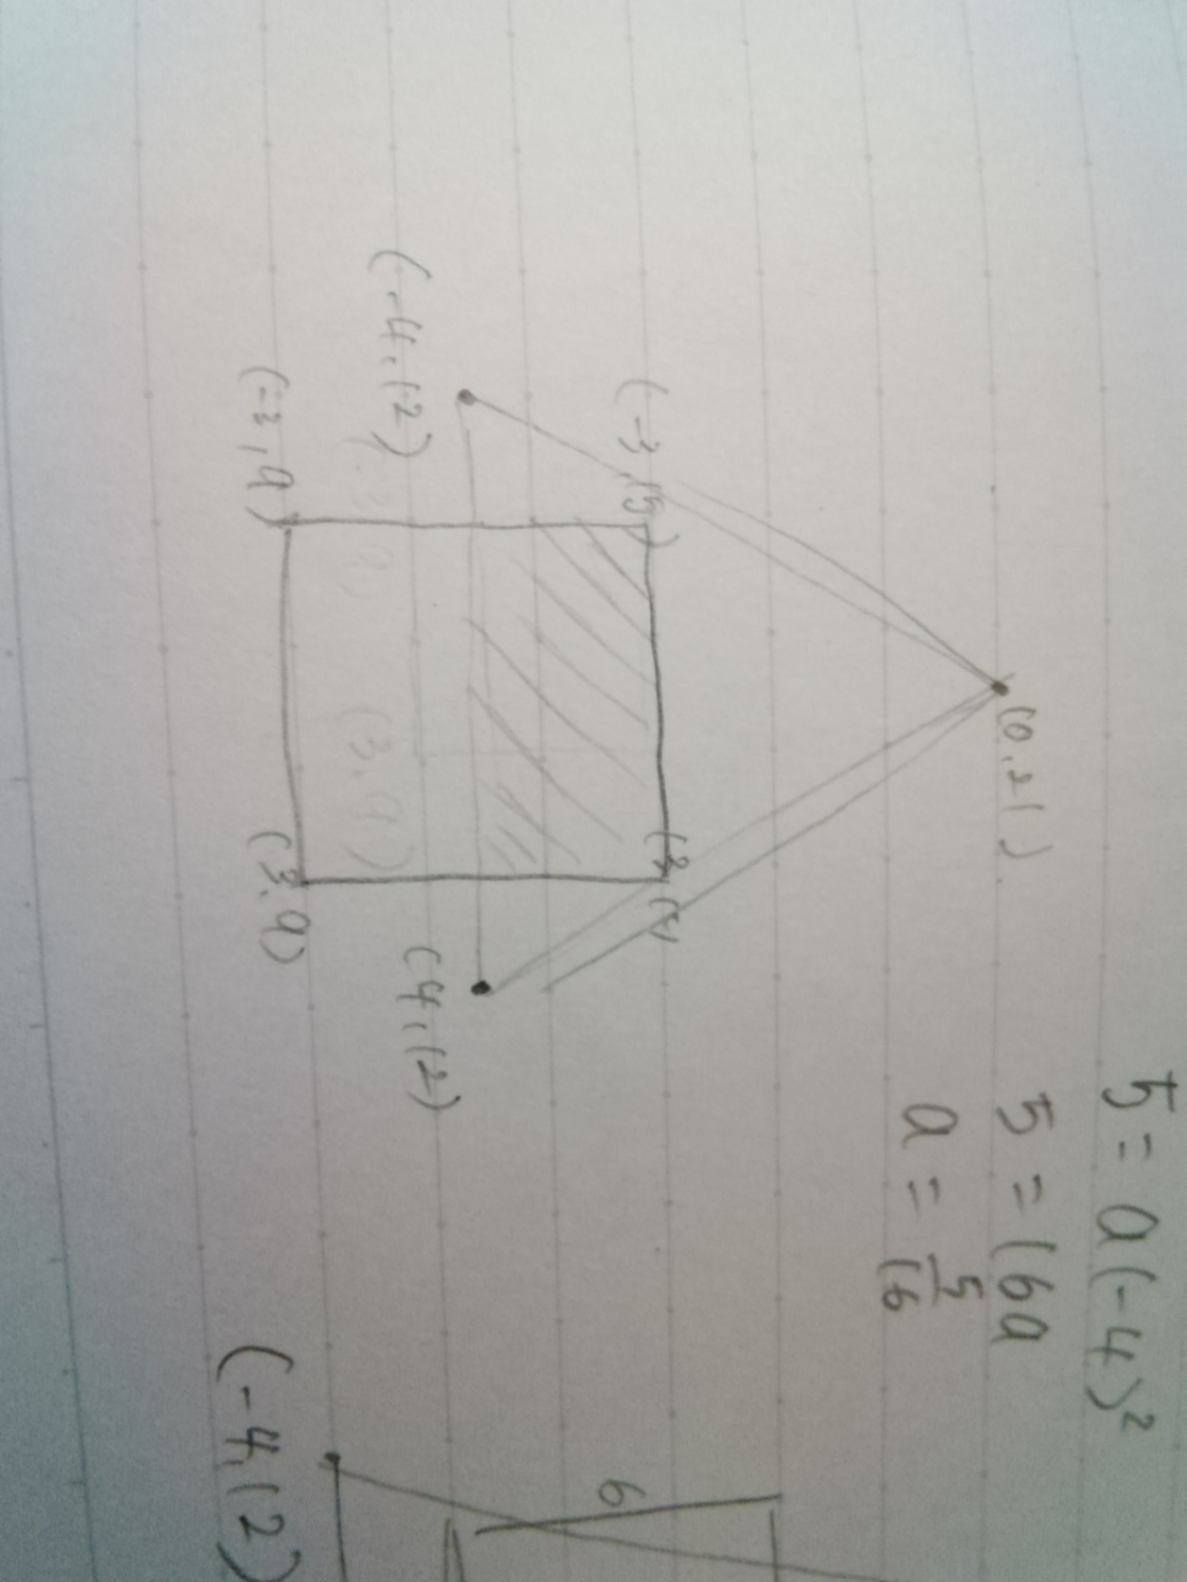 (0,21)
(-3,15)
(-4,12)
(4,12)
(-3,9)
(3,9)
(3,9)
5=a(-4)²
5=16a
a=5/16
6
(-4,12)